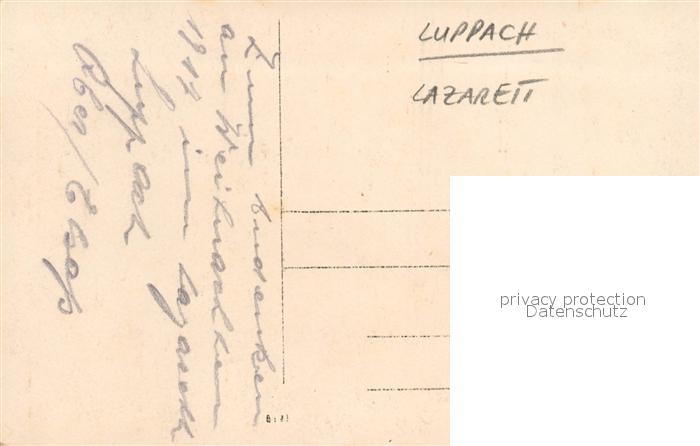 LUPPACH
LAZARETT
Zum Andenken
an Weihnachten
1917 im Lazarett
Luppach
Elsaß
privacy protection
Datenschutz